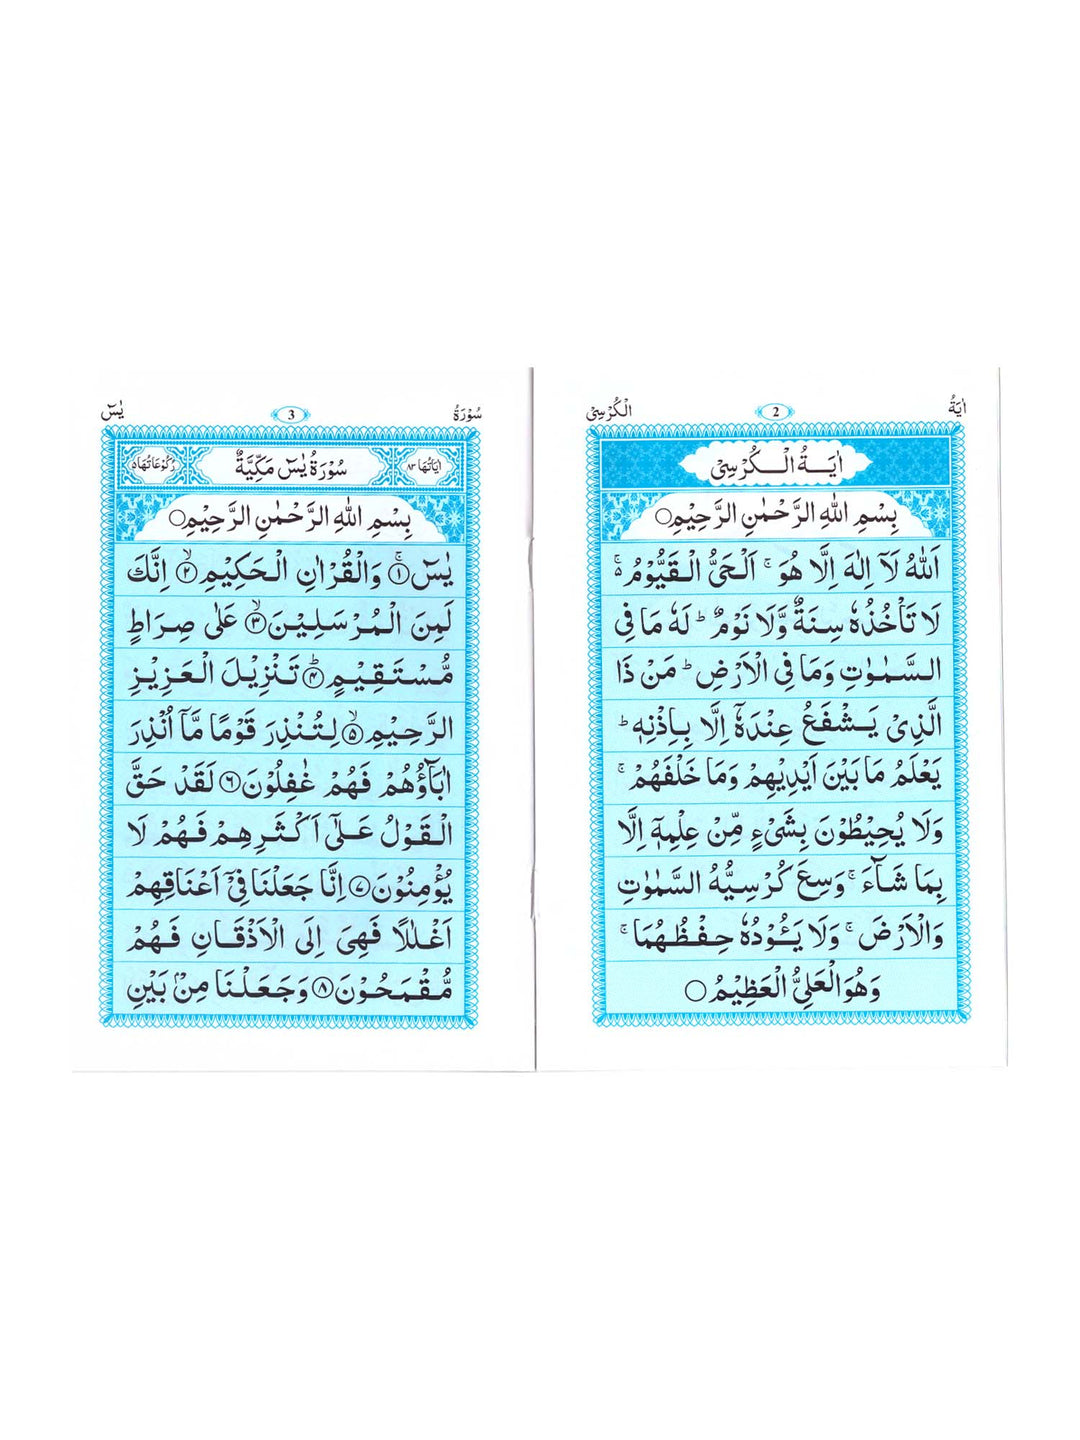 اٰيَةُ
2
الْكُرْسِىْ
اٰيَـــةُ الْـــكُـرْسِىْ
بِسْمِ اللهِ الرَّحْمٰنِ الرَّحِيْمِ○
اَللهُ لَآ اِلٰهَ اِلَّا هُوَ ۚ اَلْحَىُّ الْقَيُّوْمُ ۚ۬
لَا تَاْخُذُهٗ سِنَةٌ وَّلَا نَوْمٌ ؕ لَهٗ مَا فِى
السَّمٰوٰتِ وَمَا فِى الْاَرْضِ ؕ مَنْ ذَا
الَّذِىْ يَـشْفَعُ عِنْدَهٗٓ اِلَّا بِـاِذْنِهٖ ؕ
يَعْلَمُ مَا بَيْنَ اَيْدِيْهِمْ وَمَا خَلْفَهُمْ ۚ
وَلَا يُحِيْطُوْنَ بِشَىْءٍ مِّنْ عِلْمِهٖٓ اِلَّا
بِمَا شَآءَ ۚ وَسِعَ كُرْسِيُّهُ السَّمٰوٰتِ
وَالْاَرْضَ ۚ وَلَا يَـئُوْدُهٗ حِفْظُهُمَا ۚ
وَهُوَ الْعَلِىُّ الْعَظِيْمُ ○
سُوْرَةُ
3
يٰسٓ
اٰيَاتُهَا ٨٣
سُوْرَةُ يٰسٓ مَكِّيَّةٌ
رُكُوْعَاتُهَا ٥
بِسْمِ اللهِ الرَّحْمٰنِ الرَّحِيْمِ○
يٰسٓ ۚ‏﴿۱﴾ وَالْقُرْاٰنِ الْحَكِيْمِ ۙ‏﴿۲﴾ اِنَّكَ
لَمِنَ الْمُرْسَلِيْنَ ۙ‏﴿۳﴾ عَلٰى صِرَاطٍ
مُّسْتَقِيْمٍ ؕ‏﴿۴﴾ تَنْزِيْلَ الْعَزِيْزِ
الرَّحِيْمِ ۙ‏﴿۵﴾ لِتُنْذِرَ قَوْمًا مَّاۤ اُنْذِرَ
اٰبَآؤُهُمْ فَهُمْ غٰفِلُوْنَ ‏﴿۶﴾ لَقَدْ حَقَّ
الْقَوْلُ عَلٰٓى اَكْثَرِهِمْ فَهُمْ لَا
يُؤْمِنُوْنَ ‏﴿۷﴾ اِنَّا جَعَلْنَا فِىْۤ اَعْنَاقِهِمْ
اَغْلٰلًا فَهِىَ اِلَى الْاَذْقَانِ فَهُمْ
مُّقْمَحُوْنَ ‏﴿۸﴾ وَجَعَلْنَا مِنْۢ بَيْنِ